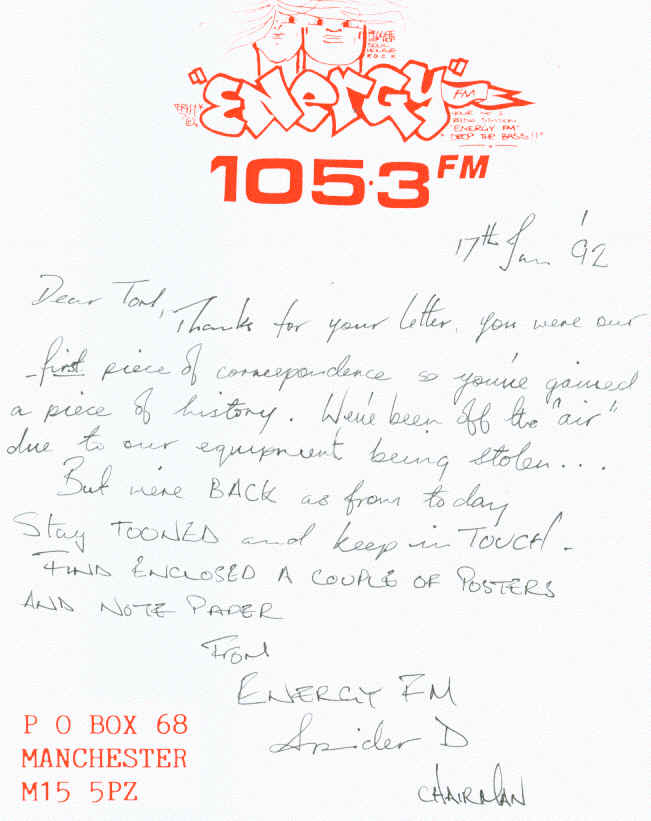 "ENERGY"
FM
ENERGY FM"
DROP THE BASS!!"
105·3 FM
17th Jan '92
Dear Tom,
Thanks for your letter, you were our
first piece of correspondence so you've gained
a piece of history. We've been off the "air"
due to our equipment being stolen...
But we're BACK as from today
Stay TOONED and keep in TOUCH.
FIND ENCLOSED A COUPLE OF POSTERS
AND NOTE PAPER
FROM
ENERGY FM
Spider D
CHAIRMAN
P O BOX 68
MANCHESTER
M15 5PZ